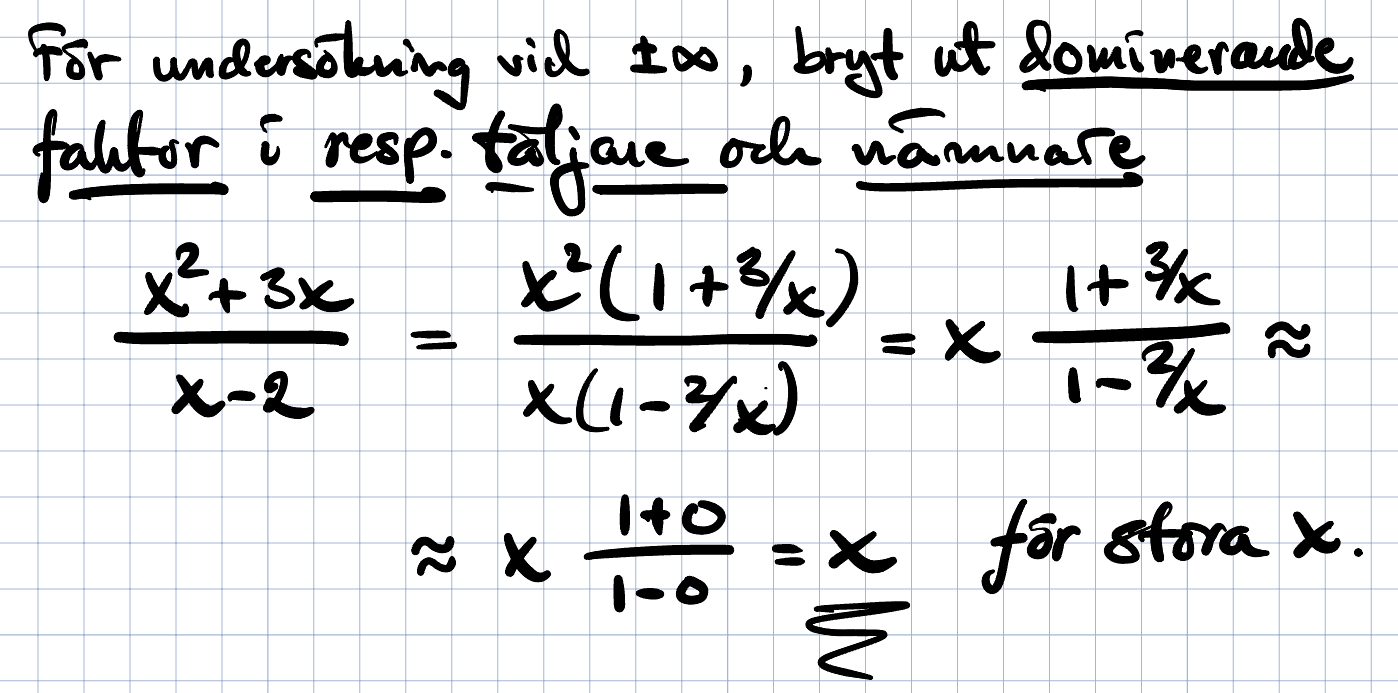 För undersökning vid ±∞, bryt ut dominerande
faktor i resp. täljare och nämnare
x²+3x / x-2 = x²(1+3/x) / x(1-2/x) = x 1+3/x / 1-2/x ≈
≈ x 1+0 / 1-0 = x för stora x.